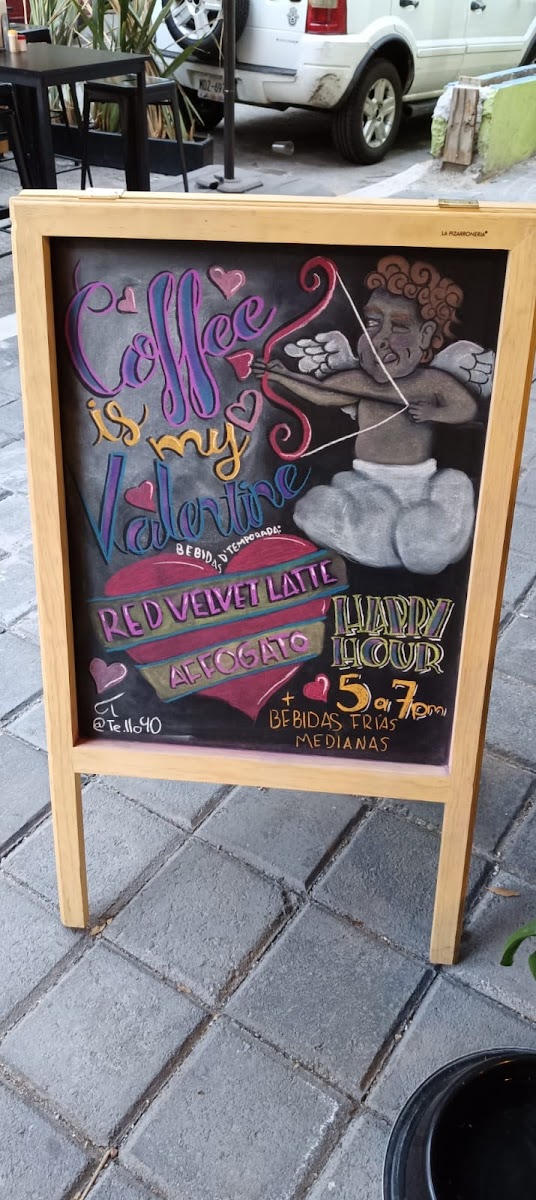 LA PIZARRONERIA
Coffee
is my
Valentine
BEBIDAS D'TEMPORADA:
RED VELVET LATTE
AFFOGATO
HAPPY
HOUR
5 a 7pm
+ BEBIDAS FRÍAS
MEDIANAS
CT
@Te.llo90